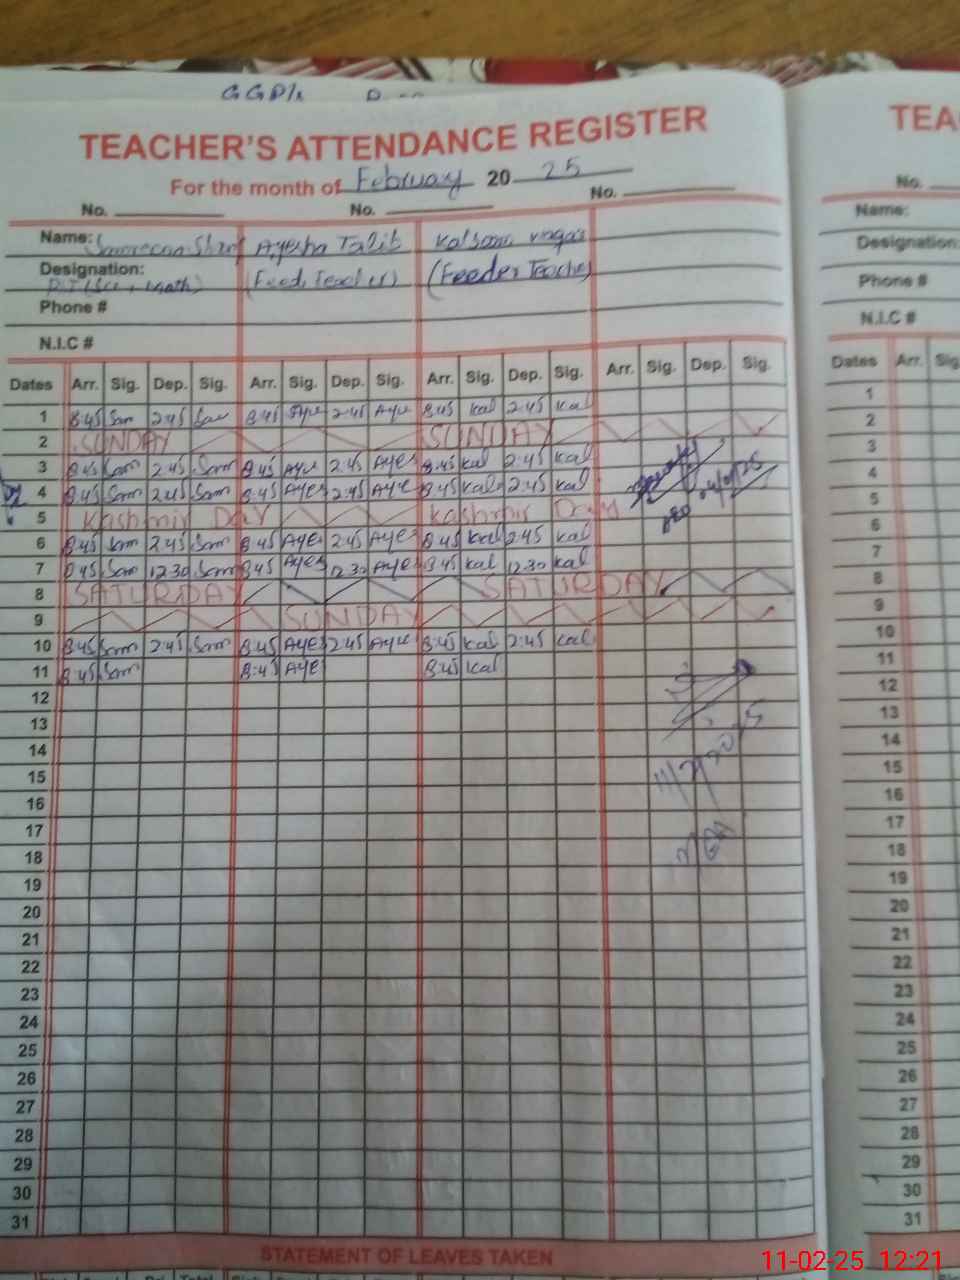 GGP/s
TEACHER'S ATTENDANCE REGISTER
For the month of February 20 25
No. No. No.
Name: Ayesha Talib Kalsoom
Designation: (Feed. Teacher) (Feeder Teacher)
Phone #
N.I.C #
Dates Arr. Sig. Dep. Sig. Arr. Sig. Dep. Sig. Arr. Sig. Dep. Sig. Arr. Sig. Dep. Sig.
1 8:45 Sam 2:45 Sam 8:45 Aye 2:45 Aye 8:45 Kal 2:45 Kal
2 SUNDAY SUNDAY
3 8:45 Sam 2:45 Sam 8:45 Aye 2:45 Aye 8:45 Kal 2:45 Kal
4 8:45 Sam 2:45 Sam 8:45 Aye 2:45 Aye 8:45 Kal 2:45 Kal
5 Kashmir DAY Kashmir Day
6 8:45 Sam 2:45 Sam 8:45 Aye 2:45 Aye 8:45 Kal 2:45 Kal
7 8:45 Sam 12:30 Sam 8:45 Aye 12:30 Aye 8:45 Kal 12:30 Kal
8 SATURDAY SATURDAY
9 SUNDAY
10 8:45 Sam 2:45 Sam 8:45 Aye 2:45 Aye 8:45 Kal 2:45 Kal
11 8:45 Sam 8:45 Aye 8:45 Kal
12
13
11/2/2025
14
15
16
17
18
19
20
21
22
23
24
25
26
27
28
29
30
31
STATEMENT OF LEAVES TAKEN
TEA
No.
Name:
Designation:
Phone #
N.I.C #
Dates Arr. Sig
1
2
3
4
5
6
7
8
9
10
11
12
13
14
15
16
17
18
19
20
21
22
23
24
25
26
27
28
29
30
31
11-02-25 12:21